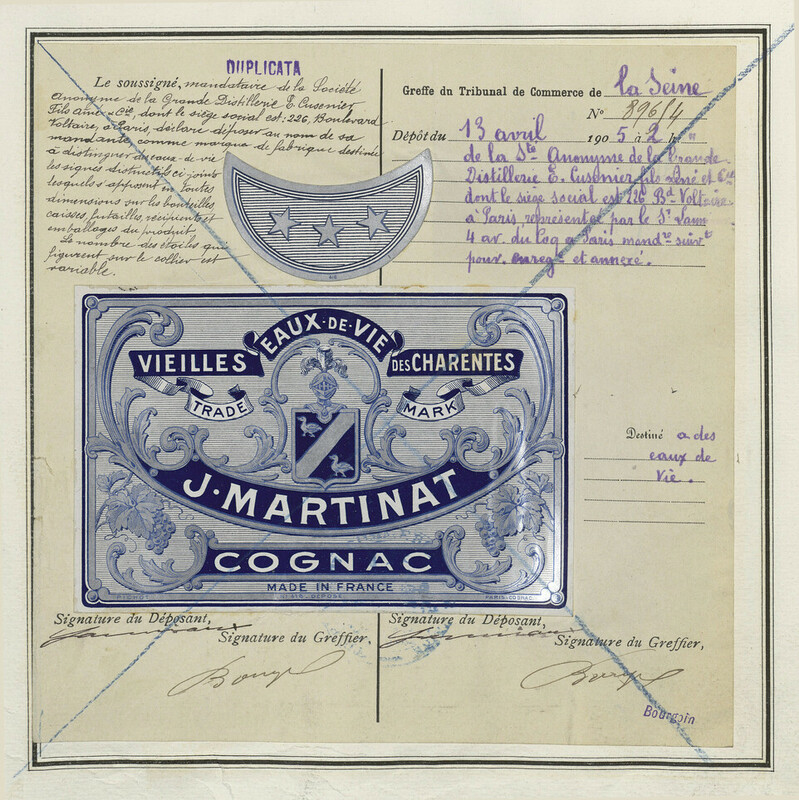 DUPLICATA
Le soussigné, mandataire de la Société
Anonyme de la Grande Distillerie E. Cusenier
Fils Aîné & Cie, dont le siège social est: 226, Boulevard
Voltaire, à Paris, déclare déposer au nom de sa
mandante comme marque de fabrique destinée
à distinguer des eaux-de-vie
les signes distinctifs ci-joints
lesquels s'apposent en toutes
dimensions sur les bouteilles,
caisses, futailles, récipients et
emballages du produit.
Le nombre des étoiles qui
figurent sur le collier est
variable.
Greffe du Tribunal de Commerce de la Seine
No 89614
Dépôt du 13 avril 1905 à 2 h
de la Sté Anonyme de la Grande
Distillerie E. Cusenier fils aîné et Cie
dont le siège social est 226 Bd Voltaire
à Paris représentée par le Sr
4 av. du Coq à Paris mandre suivt
pouv. enreg et annexé.
VIEILLES EAUX-DE-VIE DES CHARENTES
TRADE MARK
J. MARTINAT
COGNAC
MADE IN FRANCE
PICHOT
DÉPOSÉ
PARIS-COGNAC
Destiné a des
eaux de
vie.
Signature du Déposant,
Signature du Greffier,
Signature du Déposant,
Signature du Greffier,
Bourgoin